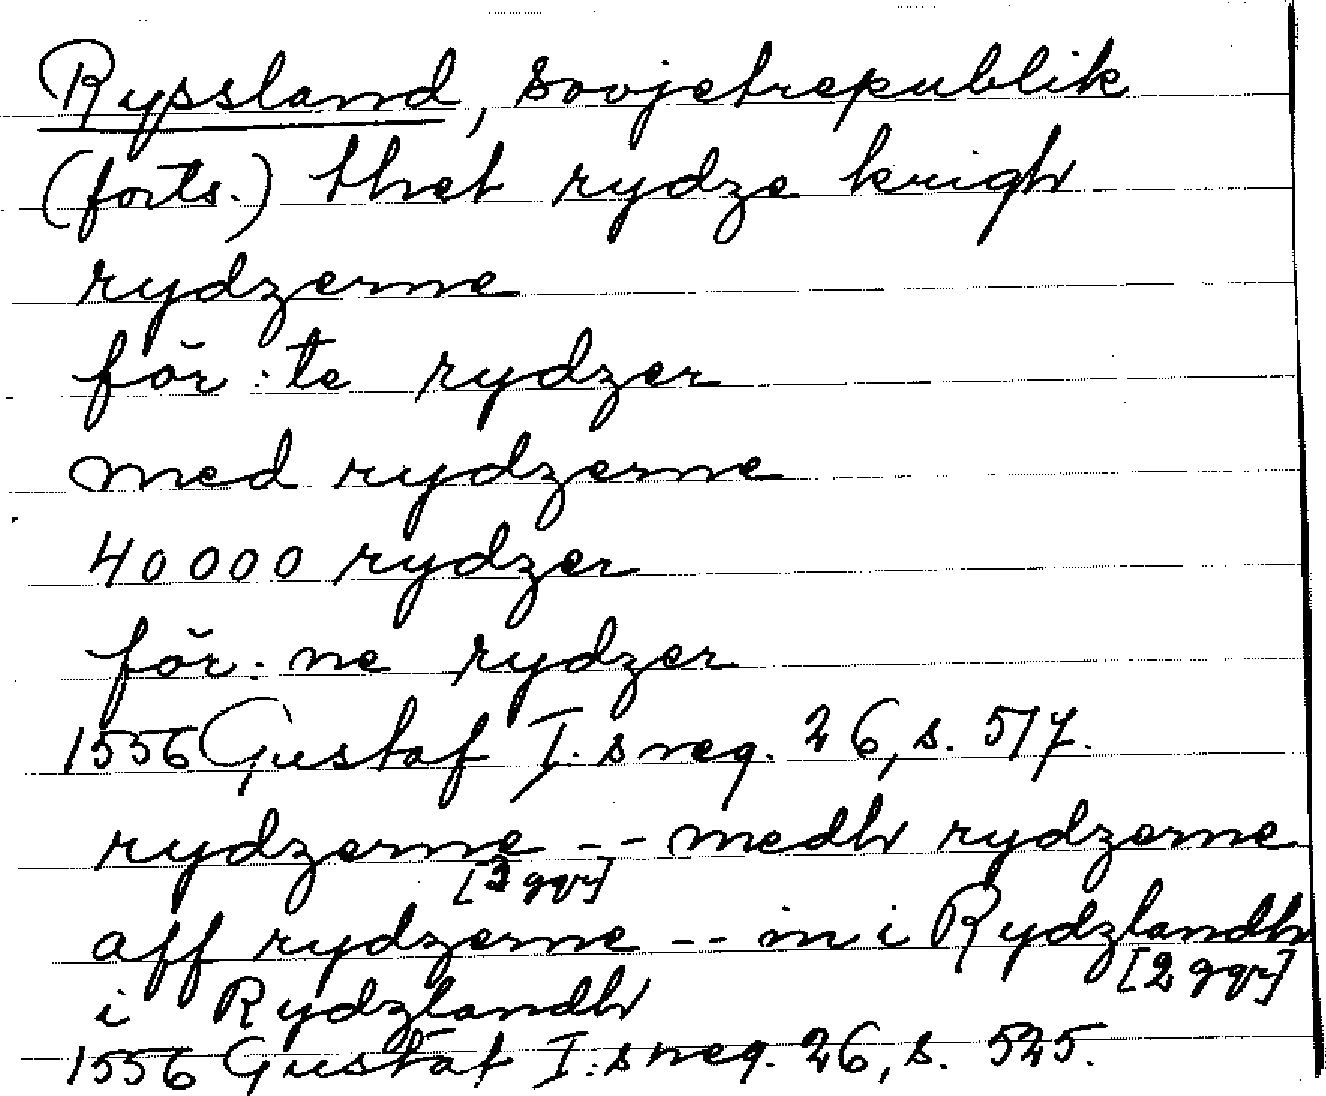 Ryssland, Sovjetrepublik
(forts.) thet rydze krigh
rydzerne
för:te rydzer
med rydzerne
40000 rydzer
för:ne rydzer
1556 Gustaf I:s reg. 26, s. 517.
rydzerne -- medh rydzerne
[3 ggr]
aff rydzerne -- in i Rydzlandh
[2 ggr]
i Rydzlandh
1556 Gustaf I:s reg. 26, s. 525.